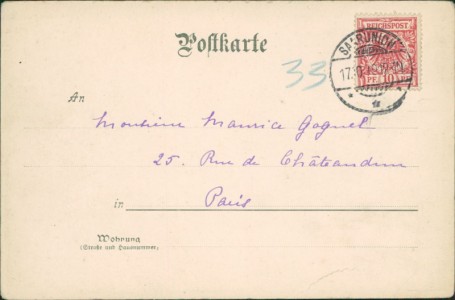 Postkarte
REICHSPOST
PF. 10 PF.
SAARUNION
33
An
Monsieur Maurice Goguel
25. Rue de Châteaudun
in Paris
Wohnung
(Straße und Hausnummer)